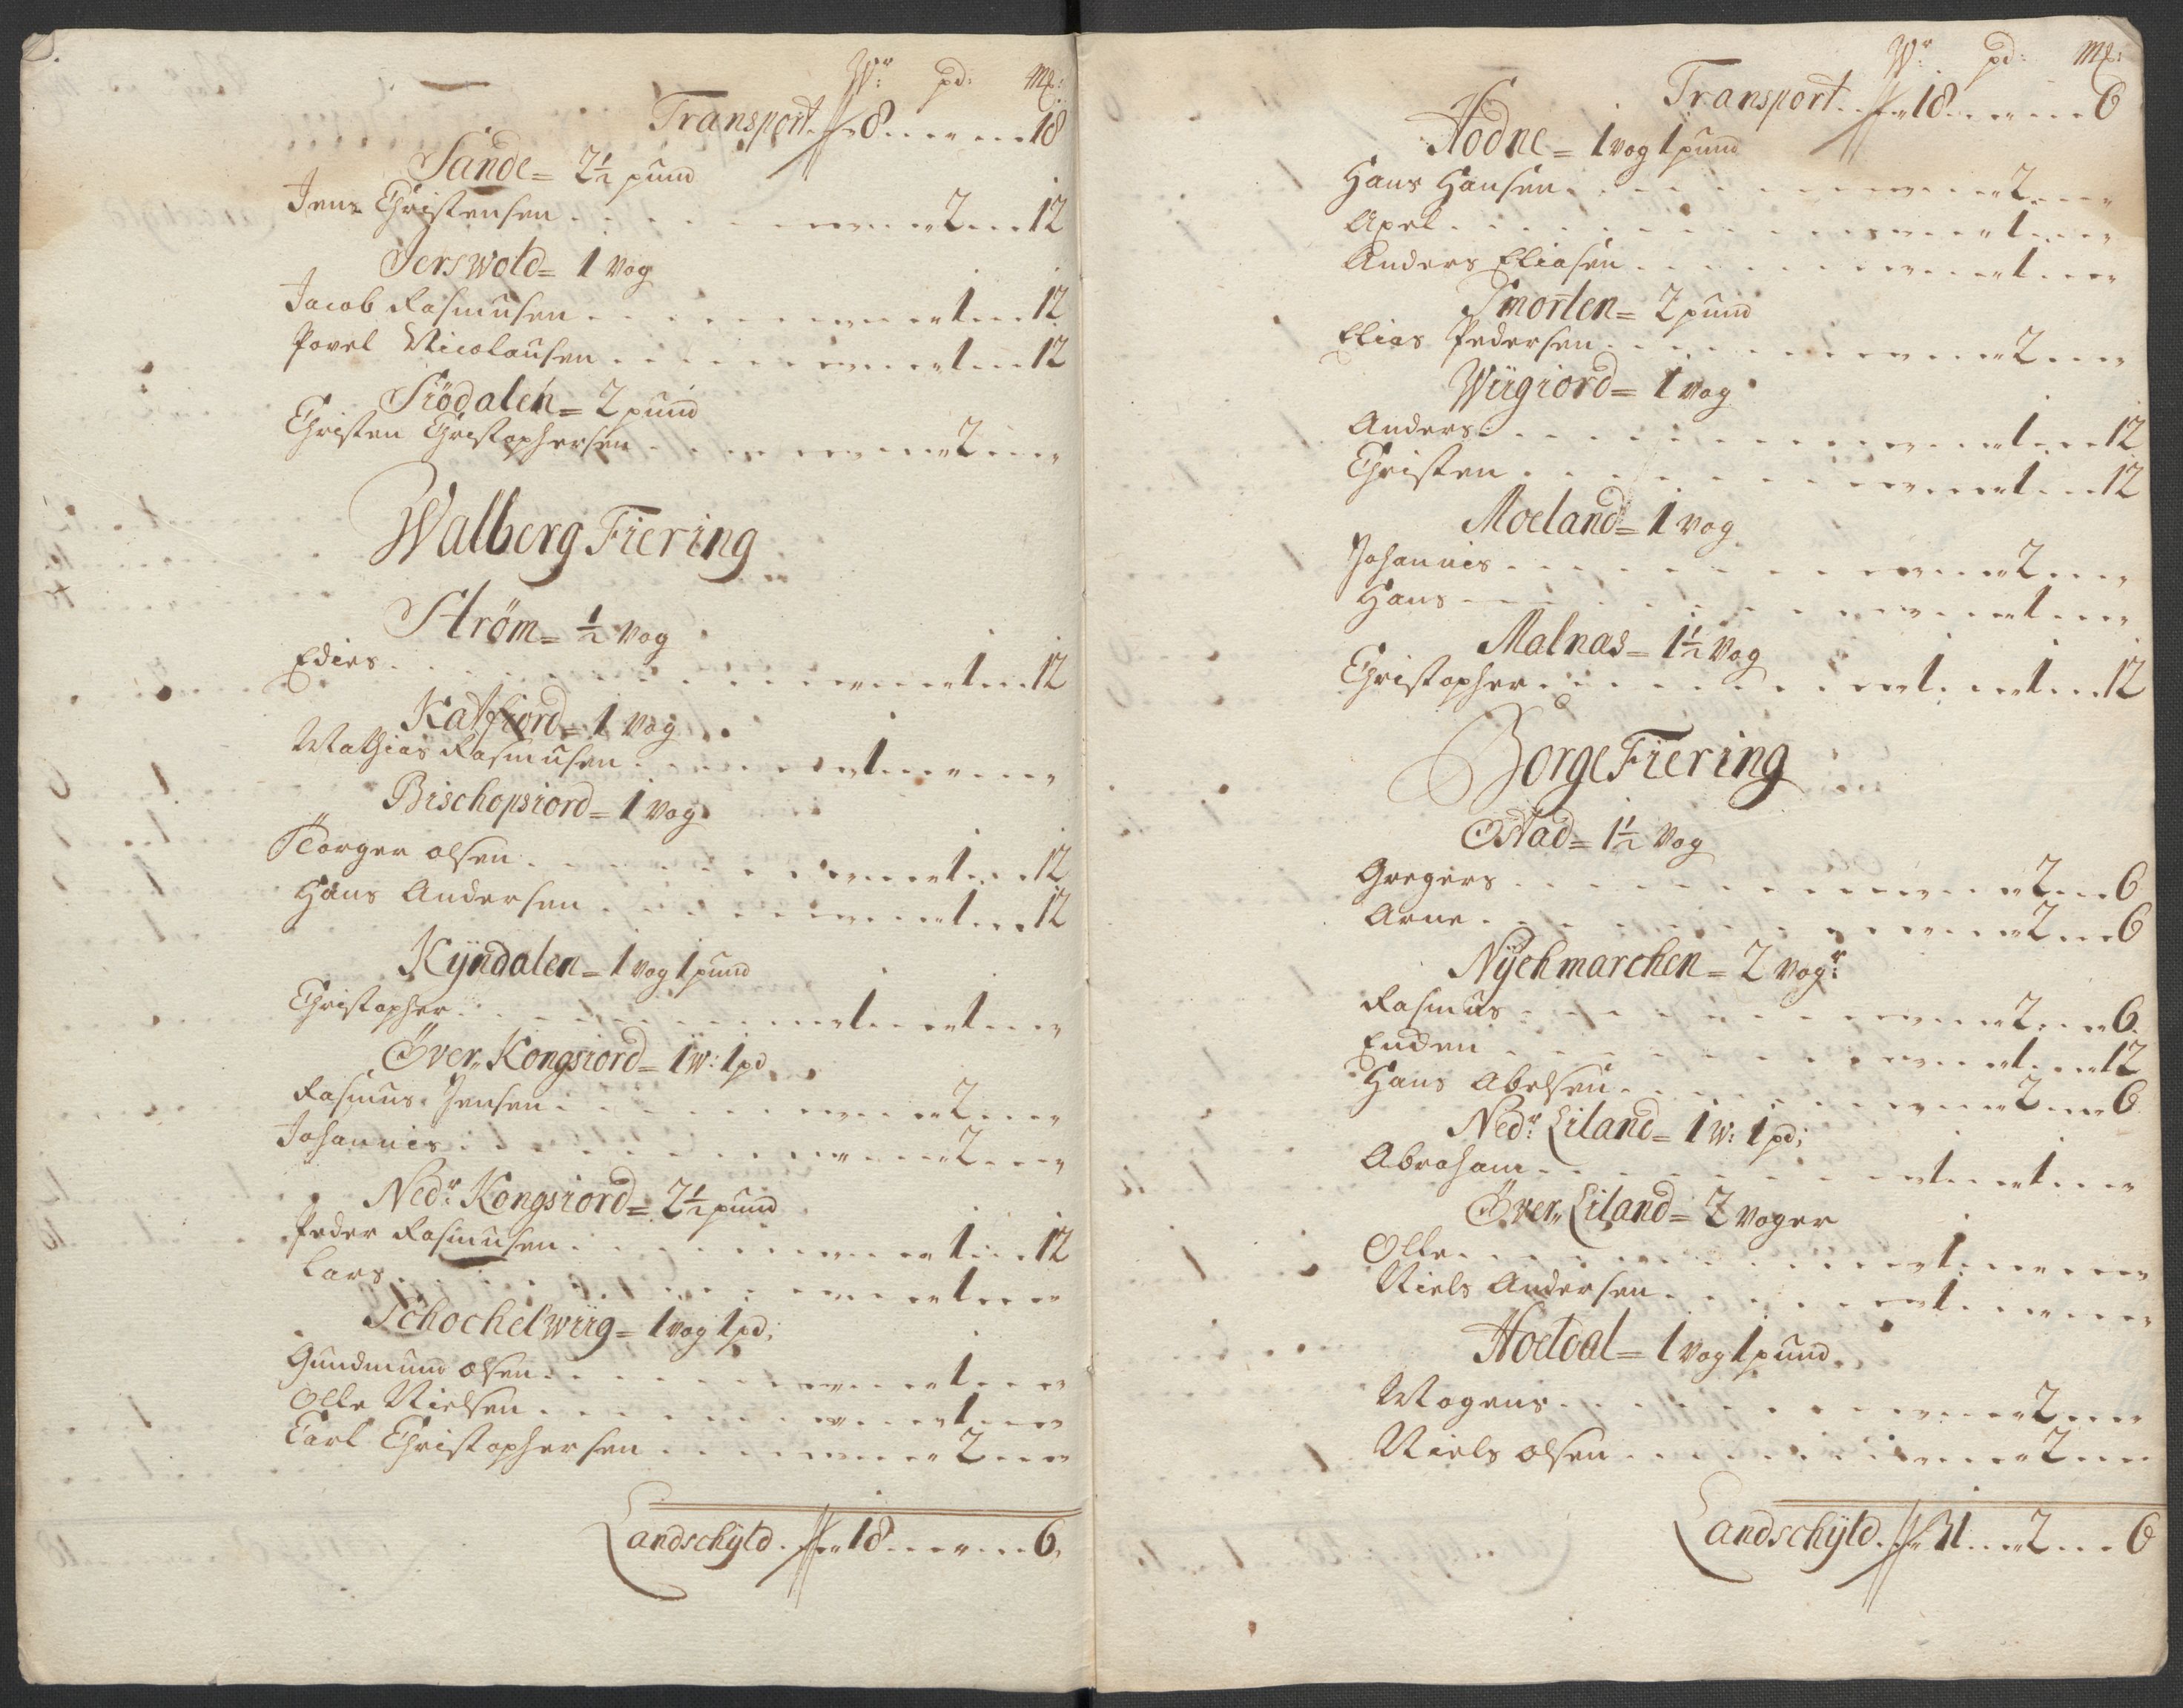 Wr: pd: Mk:
Transport 8 18
Sande = 2½ pund
Jens Christensen 2 12
Jerswold = 1 Vog
Jacob Rasmusen 1 12
Povel Nicolausen 1 12
Siødalen = 2 pund
Christen Christophersen 2
Walberg Fiering
Strøm = ½ Vog
Edies 1 12
Katfiord = 1 Vog
Mathias Rasmusen 1
Bischopsiord = 1 Vog
Torger Olsen 1 12
Hans Andersen 1 12
Kÿndalen = 1 Vog 1 pund
Christopher 1 1
Över Kongsiord = 1 W: 1 pd
Rasmus Jensen 2
Johannis 2
Nedr: Kongsiord = 2½ pund
Peder Rasmusen 1 12
Lars 1
Schochelwiig = 1 Vog 1 pd:
Gundmund Olsen 1
Olle Nielsen 1
Carl Christophersen 2
Landschÿld 18 6
Wr: pd: Mk:
Transport 18 6
Hodne = 1 Vog 1 pund
Hans Hansen 2
Axel 1
Anders Eliasen 1
Smorten = 2 pund
Elias Pedersen 2
Wiigiord = 1 Vog
Anders 1 12
Christen 1 12
Moeland = 1 Vog
Johannis 2
Hans 1
Malnas = 1½ Vog
Christopher 1 1 12
Borge Fiering
Ostad = 1½ Vog
Gregers 2 6
Arne 2 6
Nÿchmarchen = 2 Vogr:
Rasmus 2 6
Enden 1 12
Hans Abelsen 2 6
Nedr: Liland = 1 W: 1 pd:
Abraham 1 1
Över Liland = 2 Voger
Olle 1
Niels Andersen 1
Hoeldal = 1 Vog 1 pund
Mogens 2
Niels Olsen 2
Landschÿld 31 2 6